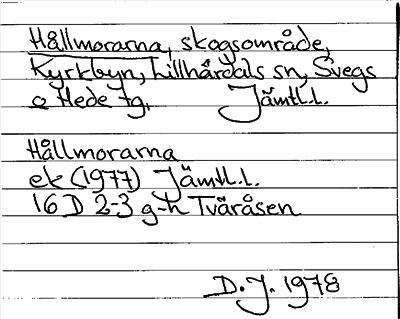 Hållmorarna, skogsområde,
Kyrkbyn, Lillhärdals sn, Svegs
o Hede tg. Jämtl.l.
Hållmorarna
ek (1977) Jämtl.l.
16D 2-3 g-h Tväråsen
D.J. 1978